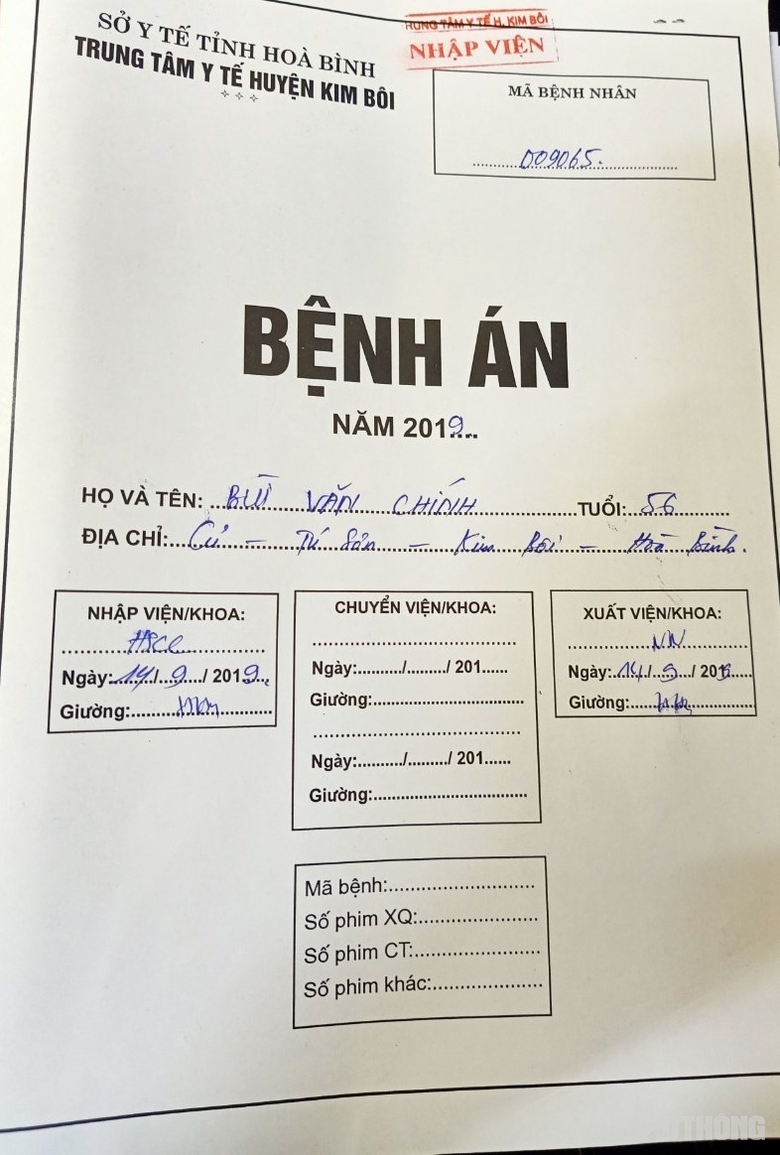 SỞ Y TẾ TỈNH HOÀ BÌNH
TRUNG TÂM Y TẾ HUYỆN KIM BÔI
TRUNG TÂM Y TẾ H. KIM BÔI
NHẬP VIỆN
MÃ BỆNH NHÂN
009065.
BỆNH ÁN
NĂM 2019
HỌ VÀ TÊN: BÙI VĂN CHÍNH TUỔI: 56
ĐỊA CHỈ: Củ - Tú Sơn - Kim Bôi - Hoà Bình.
NHẬP VIỆN/KHOA:
HSCC
Ngày: 14/9/2019
Giường:
CHUYỂN VIỆN/KHOA:
Ngày:........./........./ 201......
Giường:
Ngày:........./........./ 201......
Giường:
XUẤT VIỆN/KHOA:
Ngày: 14/9/201
Giường:
Mã bệnh:
Số phim XQ:
Số phim CT:
Số phim khác:
THÔNG